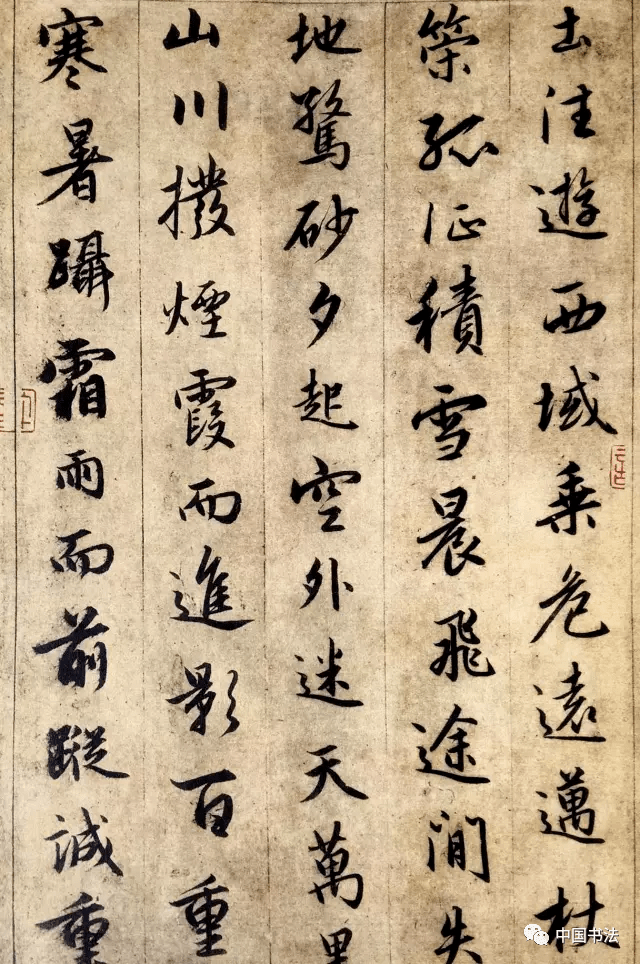 土往遊西域乘危遠邁杖
策孤征積雪晨飛途閒失
地驚砂夕起空外迷天萬里
山川撥煙霞而進影百重
寒暑躡霜雨而前蹤誠重
中国书法